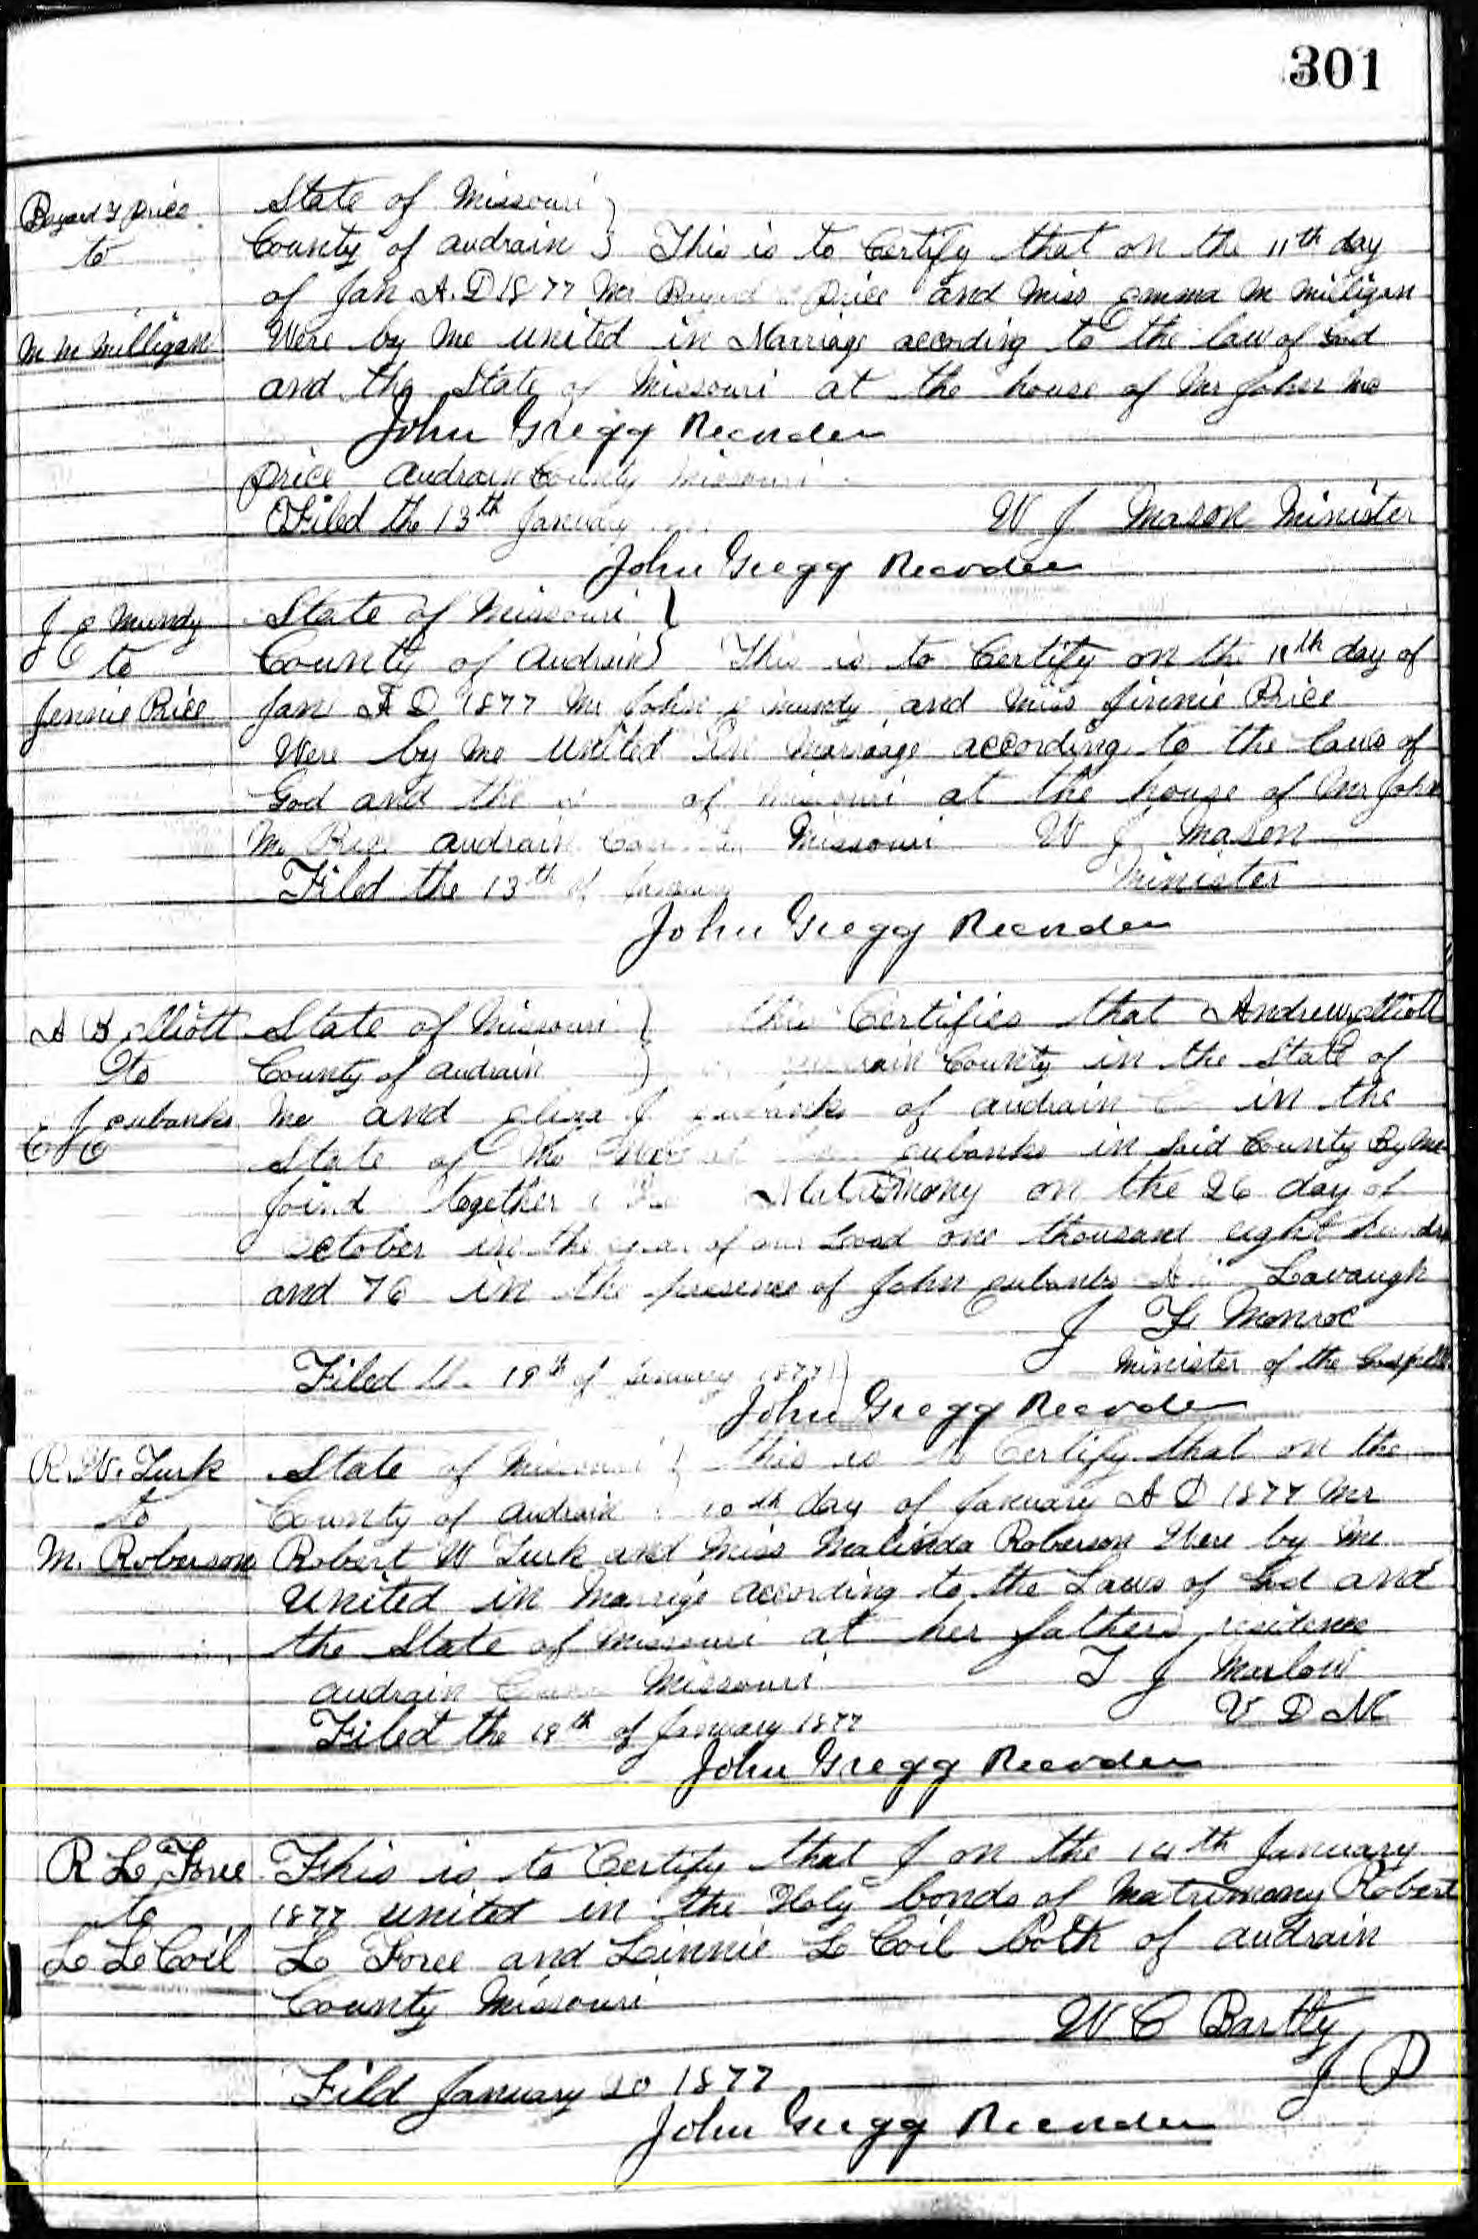 301
Bayard F Price
to
M M Milligan
State of Missouri
County of Audrain } This is to Certify that on the 11th day
of Jan A.D 1877 Mr Price and Miss Emma M Milligan
Were by Me united in Marriage according to the law of God
and the State of Missouri at the house of Mr John Mc
John Gregg Recorder
Price Audrain County Missouri
Filed the 13th January
W J Mason Minister
John Gregg Recorder
J E Mundy
to
Jennie Price
State of Missouri }
County of Audrain } This is to Certify on the 11th day of
Jan A D 1877 Mr John E Mundy and Miss Jinnie Price
Were by Me United in Marriage according to the laws of
God and the of Missouri at the house of Mr John
Mc Price Audrain Missouri W J Mason
Minister
Filed the 13th of January
John Gregg Recorder
A B Elliott
to
E J Eubanks
State of Missouri } this Certifies that Andrew Elliott
County of Audrain } County in the State of
Mo and Eliza J Eubanks of Audrain C in the
State of Mo Eubanks in Said County By Me
Joind together Matrimony on the 26 day of
October in the year of our Lord one thousand eight hundr
and 76 in the presence of John Eubanks Lavaugh
J F Monroe
Minister of the Gospel
Filed 19th of January 1877
John Gregg Recorder
R. W. Turk
to
M. Roberson
State of Missouri } this is to Certify that on the
County of Audrain } 10th day of January A D 1877 Mr
Robert W Turk and Miss Malinda Roberson Were by Me
United in Marrige according to the Laws of God and
the State of Missouri at her fathers residence
Audrain Missouri T J Marlow
V D M
Filed the 19th of January 1877
John Gregg Recorder
R L Force
to
L L Coil
This is to Certify that I on the 14th January
1877 united in the Holy bonds of Matrimony Robert
L Force and Linnie L Coil both of Audrain
County Missouri
W C Bartly
J P
Fild January 20 1877
John Gregg Recorder